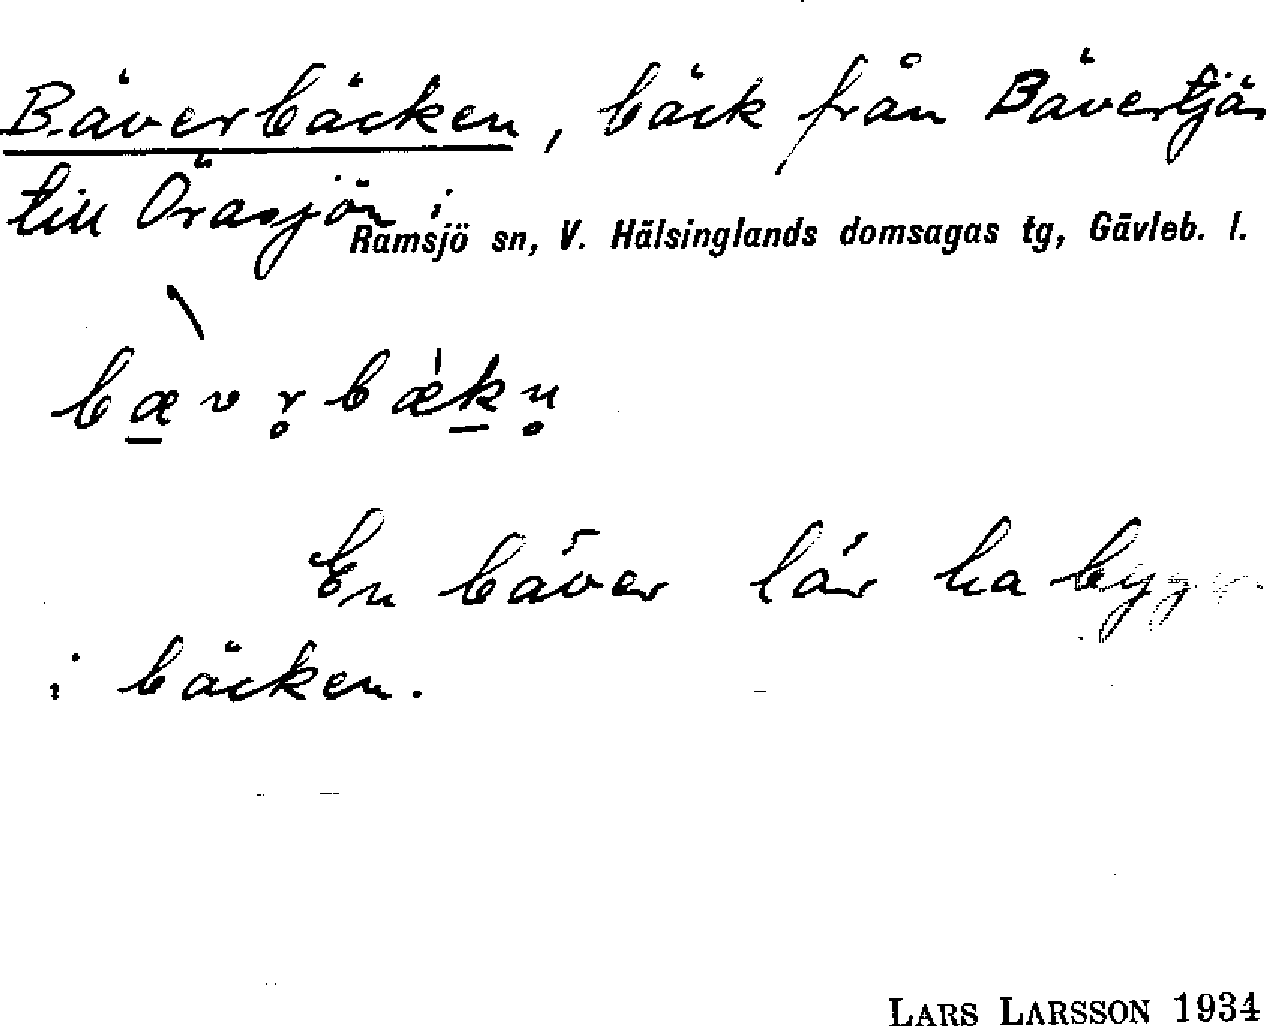 Bäverbäcken, bäck från Bävertjär
till Örasjön i
Ramsjö sn, V. Hälsinglands domsagas tg, Gävleb. l.
bævr̥bækn̥
En bäver lär ha
i bäcken.
LARS LARSSON 1934